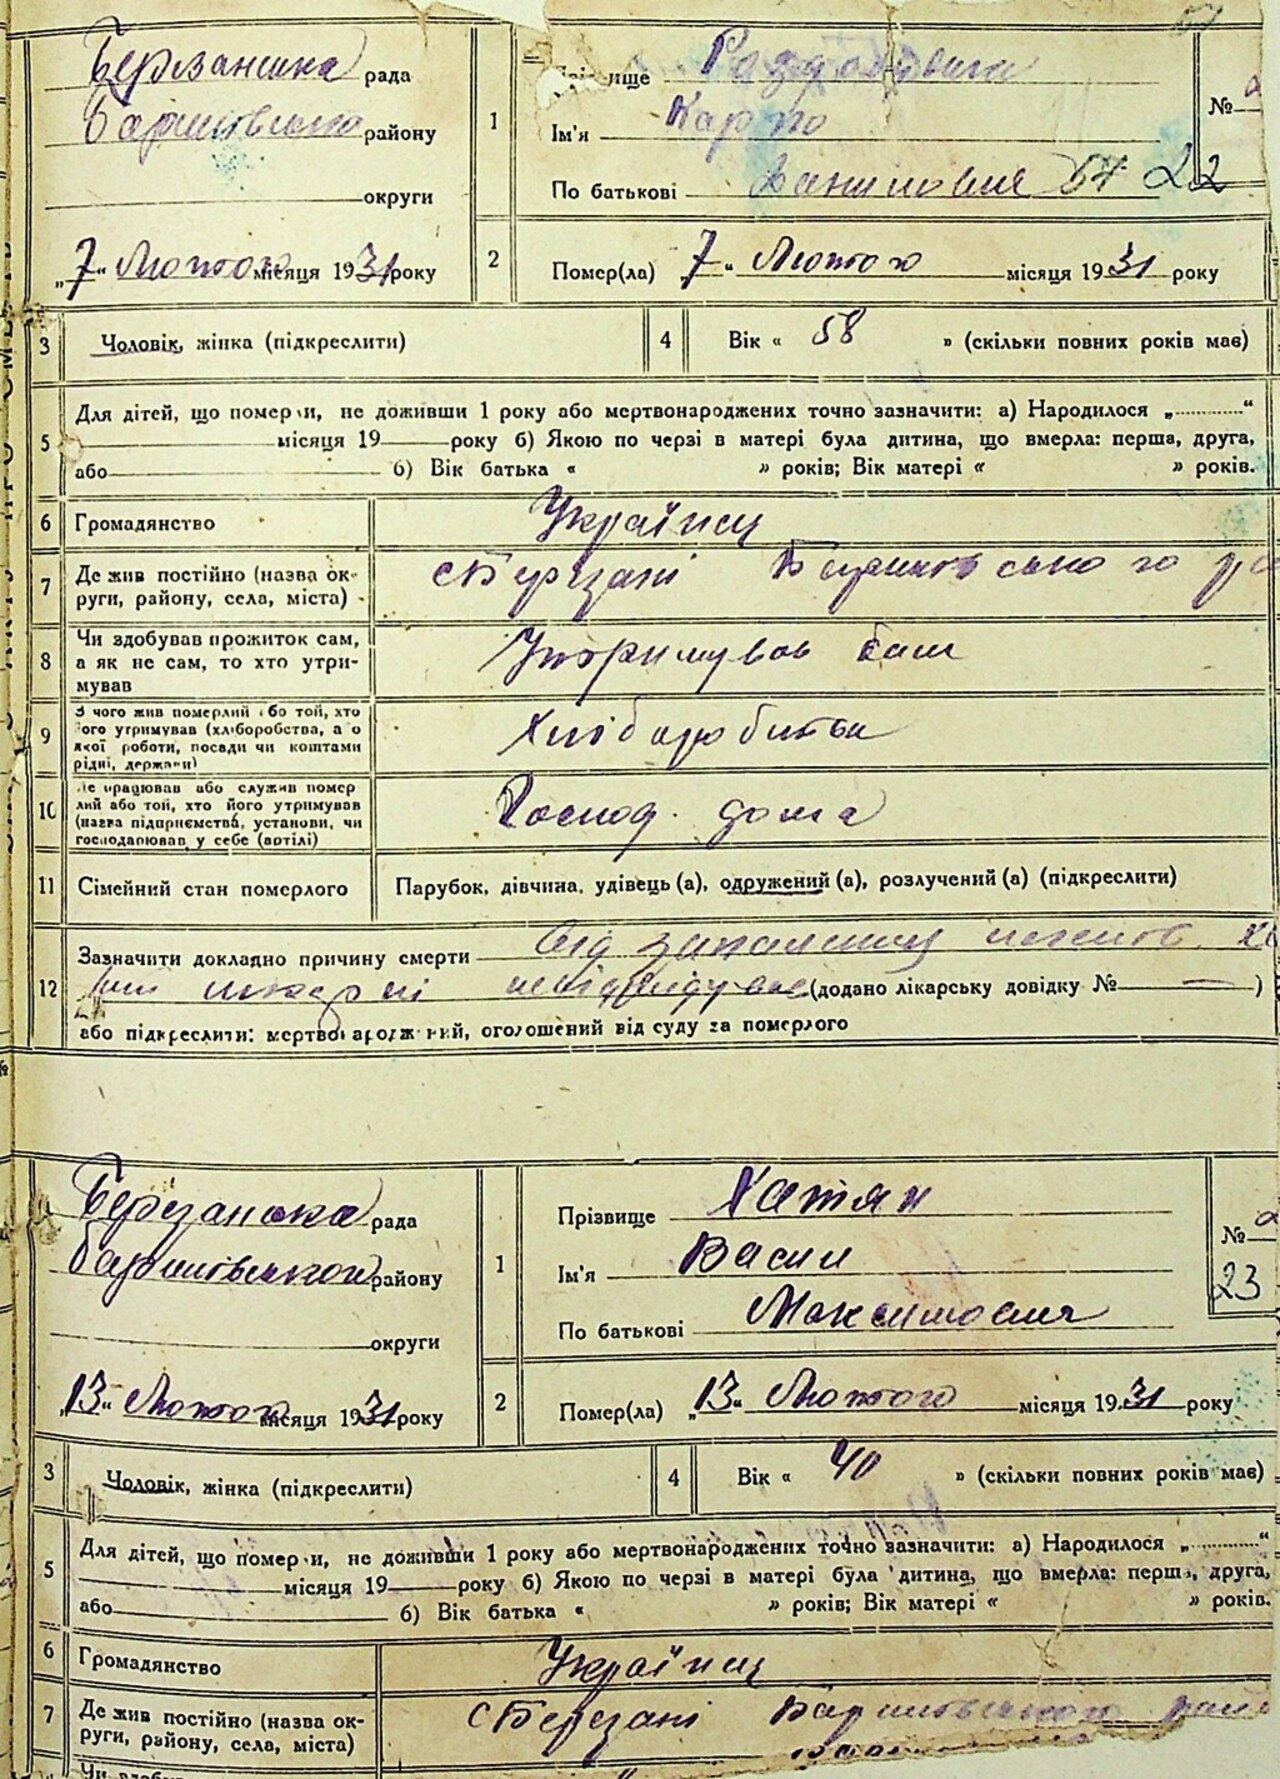 Березанська рада
Баришівсько району
округи
„7“ Лютого місяця 1931 року
1
Прізвище
Ім'я Карпо
По батькові Данилович 57 22
№
2
Помер(ла) „7“ Лютого місяця 1931 року
3
Чоловік, жінка (підкреслити)
4
Вік « 58 » (скільки повних років має)
5
Для дітей, що померли, не доживши 1 року або мертвонароджених точно зазначити: а) Народилося „............“
місяця 19 року б) Якою по черзі в матері була дитина, що вмерла: перша, друга,
або б) Вік батька « » років; Вік матері « » років.
6
Громадянство
Українец
7
Де жив постійно (назва ок-
руги, району, села, міста)
с Березані Баришівського
8
Чи здобував прожиток сам,
а як не сам, то хто утри-
мував
Утримував сам
9
З чого жив померлий або той, хто
його утримував (хліборобства, або
якої роботи, посади чи коштами
рідні, держави)
10
Де працював або служив помер
лий або той, хто його утримував
(назва підприємства, установи, чи
господарював у себе (артілі)
Господ. дома
11
Сімейний стан померлого
Парубок, дівчина, удівець (а), одружений (а), розлучений (а) (підкреслити)
12
Зазначити докладно причину смерти Від запалення легенів.
(додано лікарську довідку № — )
або підкреслити: мертвонароджений, оголошений від суду за померлого
№
Березанська рада
Баришівського району
округи
„13“ Лютого місяця 1931 року
1
Прізвище Хатян
Ім'я Васил
По батькові Максимович
№
23
2
Помер(ла) „13“ Лютого місяця 1931 року
3
Чоловік, жінка (підкреслити)
4
Вік « 40 » (скільки повних років має)
5
Для дітей, що померли, не доживши 1 року або мертвонароджених точно зазначити: а) Народилося „............“
місяця 19 року б) Якою по черзі в матері була дитина, що вмерла: перша, друга,
або б) Вік батька « » років; Вік матері « » років.
6
Громадянство
Українец
7
Де жив постійно (назва ок-
руги, району, села, міста)
с Березані Баришівського